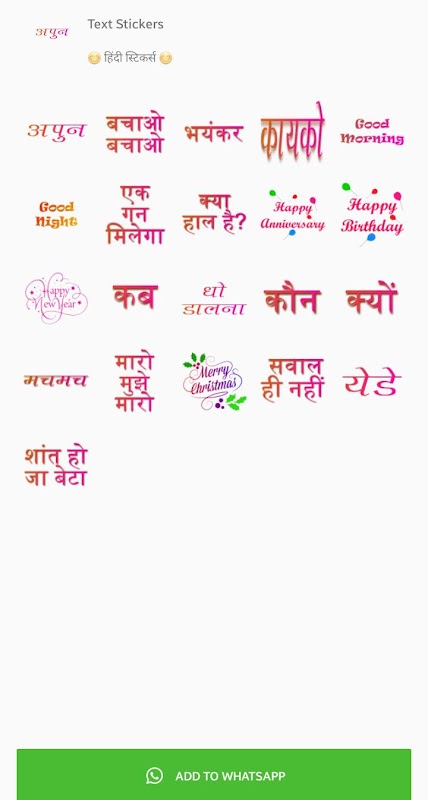 अपुन
Text Stickers
हिंदी स्टिकर्स
अपुन
बचाओ
बचाओ
भयंकर
कायको
Good
Morning
Good
Night
एक
गन
मिलेगा
क्या
हाल है?
Happy
Anniversary
Happy
Birthday
Happy
New Year
कब
धो
डालना
कौन
क्यों
मचमच
मारो
मुझे
मारो
Merry
Christmas
सवाल
ही नहीं
येडे
शांत हो
जा बेटा
ADD TO WHATSAPP